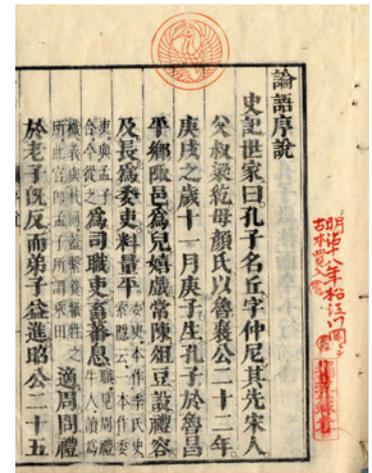 論語序說
史記世家曰孔子名丘字仲尼其先宋人
父叔梁紇母顏氏以魯襄公二十二年
庚戌之歲十一月庚子生孔子於魯昌
平鄉陬邑爲兒嬉戲常陳俎豆設禮容
及長爲委吏料量平委吏本作季氏史索隱云一本作委
吏與孟子合今從之爲司職吏畜蕃息職見周禮牛人讀爲
樴義與杙同蓋繫養犧牲之所此官即孟子所謂乘田適周問禮
於老子既反而弟子益進昭公二十五
明治十八年松江
古本買入